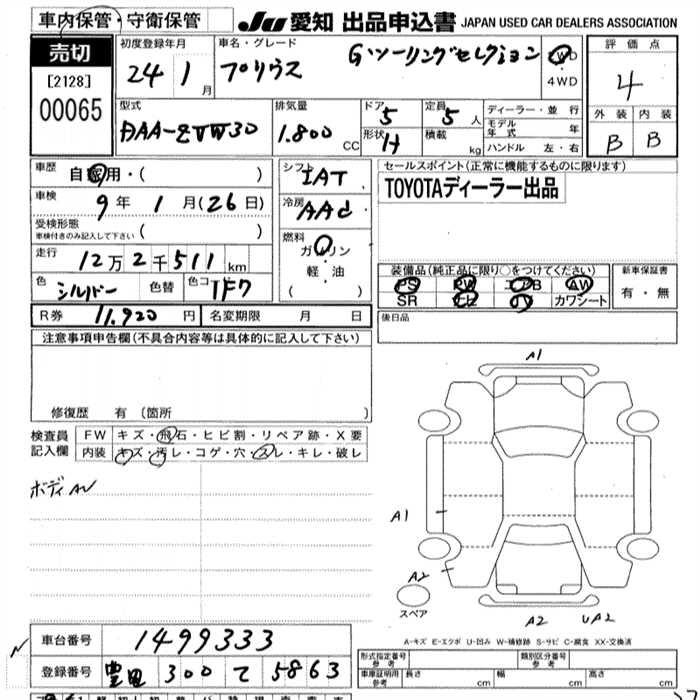 車内保管・守衛保管
JU 愛知 出品申込書 JAPAN USED CAR DEALERS ASSOCIATION
売切
[2128]
00065
初度登録年月
24 1 月
車名・グレード
プリウス G・ツーリングセレクション
2WD
4WD
評価点
4
外装 内装
B B
型式
DAA-ZVW30
排気量
1.800 CC
ドア 5
形状 H
定員 5 人
積載 kg
ディーラー・並行
モデル年式 年
ハンドル 左・右
車歴 自家用・( )
車検 9年 1月(26日)
受検形態
車検付きのみ記入して下さい ( )
走行 12万2千511km
色 シルバー 色替 色コ 1F7
シフト IAT
冷房 AAC
燃料
ガソリン
軽・油
( )
セールスポイント(正常に機能するものに限ります)
TOYOTAディーラー出品
装備品(純正品に限り○をつけてください)
PS PW エアB AW
SR ナビ TV カワシート
新車保証書
有・無
後日品
R券 11,920 円 名変期限 月 日
注意事項申告欄(不具合内容等は具体的に記入して下さい)
修復歴 有 (箇所 )
検査員
記入欄
FW キズ・飛石・ヒビ割・リペア跡・X要
内装 キズ・汚レ・コゲ・穴・スレ・キレ・破レ
A1
A1
A2
スペア
A2 UA2
A-キズ E-エクボ U-凹み W-補修跡 S-サビ C-腐食 XX-交換済
車台番号 1499333
登録番号 豊田 300 て 5863
形式指定番号
参考
類別区分番号
参考
車庫証明用
参考
長さ cm 幅 cm 高さ cm